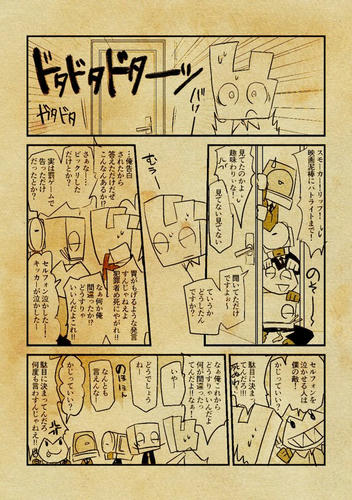 ドタドタドターッ
ドタドタ
スモーリー！リーブー！
映画泥棒にハトライトまで！
のそ…
見てたのかよ
趣味わりぃな！
見てない見てない
聞いてただけ
ですよぉ〜
ていうか
どうしたん
ですか
むぅー
…俺告白
されたから
答えただけだぜ
こんなんあるか!?
さぁな…
ビックリした
だけとか？
実は罰ゲームで
告っただけ
だったとか？
胃がもげるような発言
すんじゃねえよ
犯罪者め死にさがれ!!
なぁ何か俺
間違ったか!?
どうすりゃ
いいんだよこれ!!
セルフォンが泣かした…！
キッカーが泣かした…！
セルフォンを
泣かせる人は
僕の敵！
かじっていい？
駄目に決まっ
てんだろ!!!
死ぬわ！
なぁ俺これから
どうすりゃいいんだよ
何が間違った
てんだよ!!なぁ!!
いやー
どうでしょう
ねー
なんとも
言えんな！
のほほん
かじっていい？
駄目に決まってんだろ
何度も言わすんじゃねえ!!